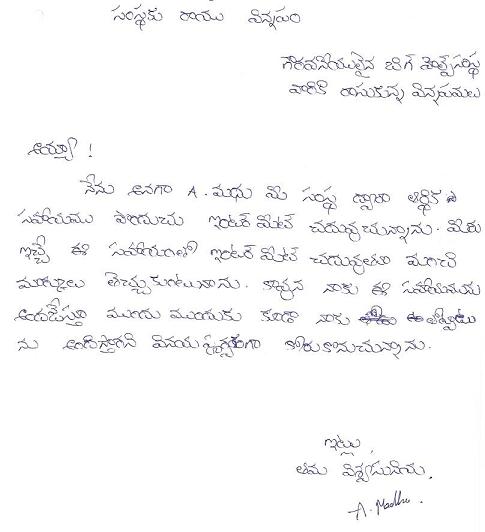 సంస్థకు రాయు విన్నపం
గౌరవనీయులైన బిగ్ హెల్ప్ సంస్థ
వారికి రాసుకున్న విన్నపములు
అయ్యా !
నేను అనగా A. మధు మీ సంస్థ ద్వారా ఆర్థిక
సహాయము పొందుచు ఇంటర్ మీడియేట్ చదువుచున్నాను. మీరు
ఇచ్చే ఈ సహాయంతో ఇంటర్ మీడియేట్ చదువుతూ మంచి
మార్కులు తెచ్చుకుంటున్నాను. కావున నాకు ఈ సహాయమును
అందజేస్తూ ముందు ముందుకు కూడా నాకు
ను అందిస్తారని వినయ పూర్వకంగా కోరుకొనుచున్నాను.
ఇట్లు,
తమ విశ్వసనీయ,
A. Madhu